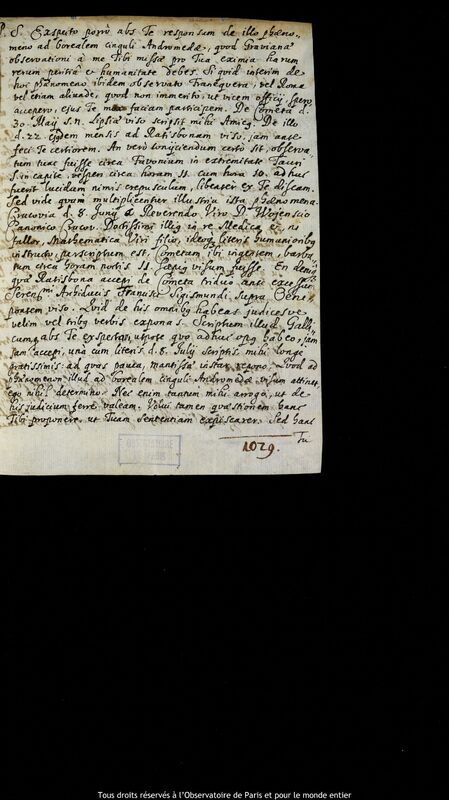 P. S. Exspecto porrò abs Te responsum de illo phæno-
meno ad borealem cinguli Andromedæ, quod Graviana
observationi à me Tibi missæ pro Tua eximia harum
rerum peritia & humanitate debes. Si quid interim de
hoc phænomeno ibidem observato Franequera, vel Roma
vel etiam aliunde, quod non immerito, ut vicem officij spero
accepero, ejus Te faciam participem. De Cometa d.
30. Maij s.n. Lipsiæ viso scripsit mihi Amicus. De illo
d. 22. ejusdem mensis ad Ratisbonam viso, jam ante
feci Te certiorem. An verò conjiciendum certò sit, observa-
tum hinc fuisse circa in extremitate Tauri
s. in capite, vesperi circa horam 11. cum hora 10. adhuc
fuerit lucidum nimis crepusculum, libenter ex Te discam.
Sed vide quam multiplicentur illustria ista phænomena.
Cracovia d. 8. Junij à Reverendo Viro Dn.
Canonico Cracov. Doctissimi illius in re Medica &, ni
fallor, Mathematica Viri filio, ideoque literis humanioribus
instructo perscriptum est, Cometam ibi ingentem barba-
tum circa horam noctis 11. sæpius visum fuisse. En denique
quæ Ratisbona accepi de Cometa triduo ante excessum
Serenmi Archiducis Francisci Sigismundi supra Oeni
pontem viso. Quid de his omnibus habeas judices ve
velim vel tribus verbis exponas. Scriptum illud Galli-
cum abs Te exspectari, utpote quo adhuc opus habeo, jam
jam accepi, una cum literis d. 8. Julij scriptis, mihi longe
gratissimis: ad quas pauca, mantissæ instar, repono. Quod ad
phænomenon illud ad borealem cinguli Andromedæ visum attinet,
ego nihil determino. Nec enim tantum mihi arrogo, ut de
his judicium ferre valeam. Volui tamen quæstionem hanc
Tibi proponere, ut Tuam sententiam expiscarer. Sed hanc
Tu
OBSERVATOIRE
DE PARIS
1029.
Tous droits réservés à l'Observatoire de Paris et pour le monde entier